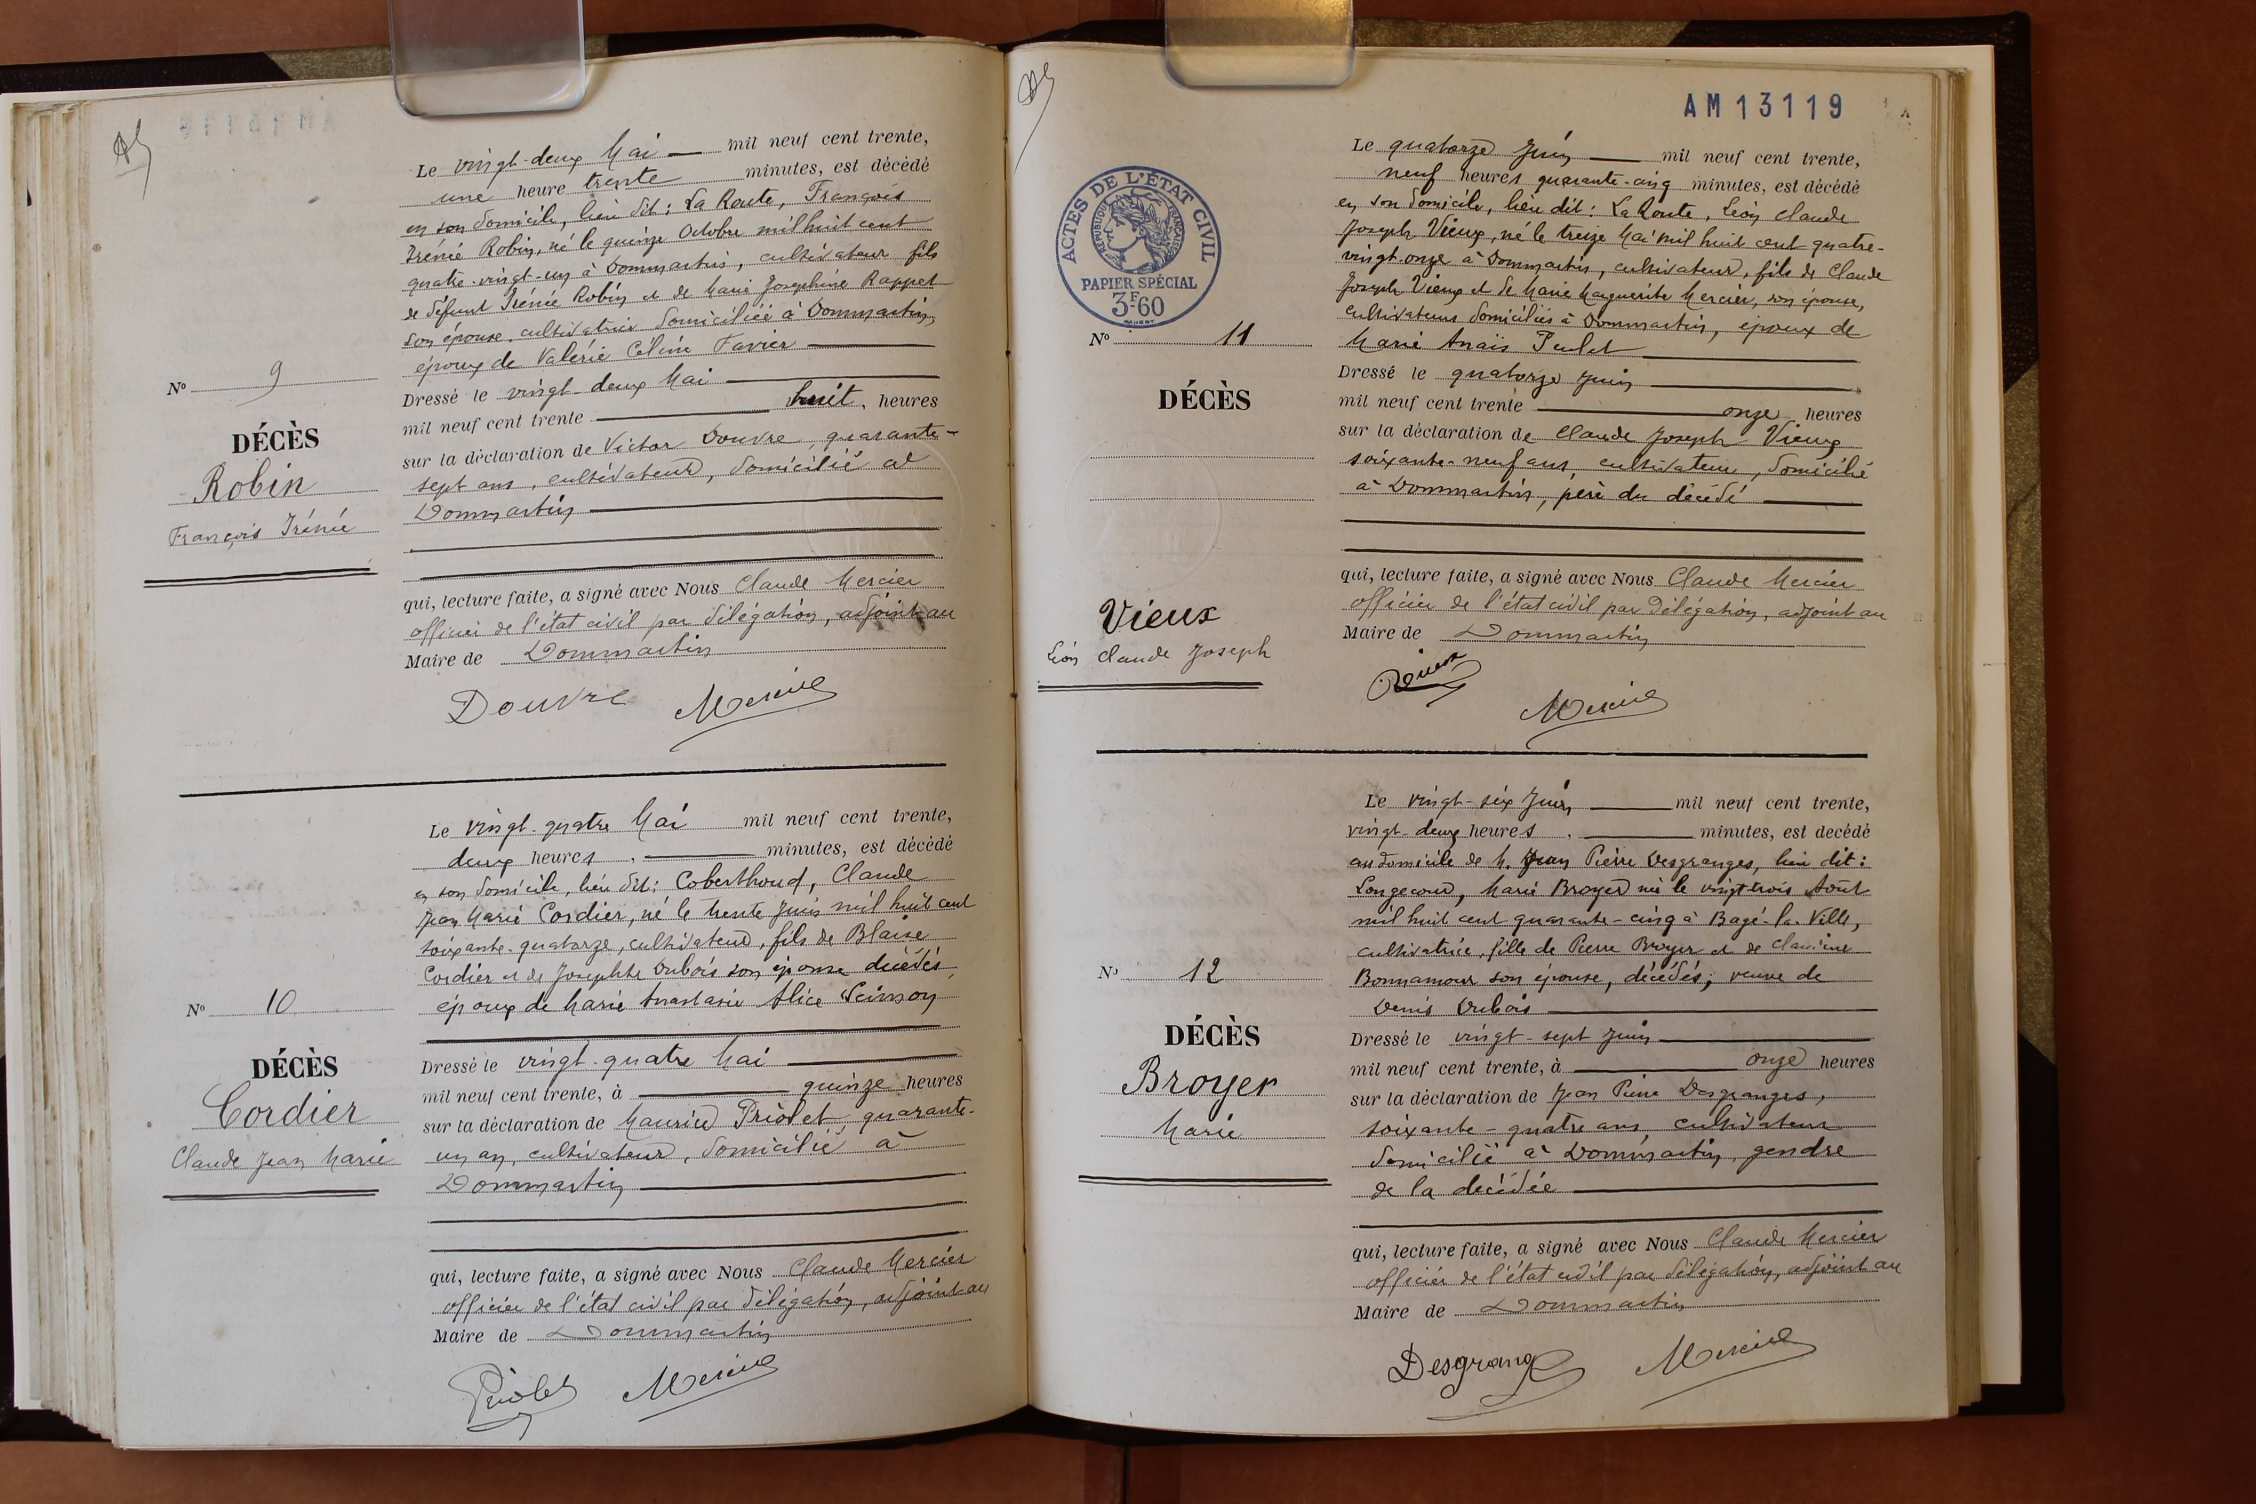 Le vingt-deux Mai mil neuf cent trente,
une heure trente minutes, est décédé
en son domicile, lieu dit : La Route, François
Irénée Robin, né le quinze Octobre mil huit cent
quatre-vingt-un à Dommartin, cultivateur fils
de défunt Irénée Robin et de Marie Joséphine Rappet
son épouse, cultivatrice domiciliée à Dommartin,
époux de Valérie Céline Favier
Nº 9
DÉCÈS
Robin
François Irénée
Dressé le vingt-deux Mai
mil neuf cent trente huit heures
sur la déclaration de Victor Douvre, quarante-
sept ans, cultivateur, domicilié à
Dommartin
qui, lecture faite, a signé avec Nous Claude Mercier
officier de l'état civil par délégation, adjoint au
Maire de Dommartin
Douvre Mercier
Le vingt-quatre Mai mil neuf cent trente,
deux heures . minutes, est décédé
en son domicile, lieu dit : Coberthoud, Claude
Jean Marie Cordier, né le trente Juin mil huit cent
soixante-quatorze, cultivateur, fils de Blaise
Cordier et de Josephte Dubois son épouse décédés,
époux de Marie Anastasie Alice
Nº 10
DÉCÈS
Cordier
Claude Jean Marie
Dressé le vingt-quatre Mai
mil neuf cent trente, à quinze heures
sur la déclaration de Maurice Priolet quarante-
un an, cultivateur, domicilié à
Dommartin
qui, lecture faite, a signé avec Nous Claude Mercier
officier de l'état civil par délégation, adjoint au
Maire de Dommartin
Priolet Mercier
AM13119
ACTES DE L'ÉTAT CIVIL
RÉPUBLIQUE FRANÇAISE
PAPIER SPÉCIAL
3F60
Le quatorze Juin mil neuf cent trente,
neuf heures quarante-cinq minutes, est décédé
en son domicile, lieu dit : La Route, Léon Claude
Joseph Vieux, né le treize Mai mil huit cent quatre-
vingt-onze à Dommartin, cultivateur, fils de Claude
Joseph Vieux et de Marie Marguerite Mercier, son épouse,
cultivateurs domiciliés à Dommartin, époux de
Marie Anaïs Perlet
Nº 11
DÉCÈS
Vieux
Léon Claude Joseph
Dressé le quatorze Juin
mil neuf cent trente onze heures
sur la déclaration de Claude Joseph Vieux
soixante-neuf ans, cultivateur, domicilié
à Dommartin, père du décédé
qui, lecture faite, a signé avec Nous Claude Mercier
officier de l'état civil par délégation, adjoint au
Maire de Dommartin
Vieux
Mercier
Le vingt-six Juin mil neuf cent trente,
vingt-deux heures . minutes, est decédé
au domicile de M. Jean Pierre Desgranges, lieu dit :
Longecour, Marie Broyer née le vingt trois Août
mil huit cent quarante-cinq à Bagé-la-Ville,
cultivatrice, fille de Pierre Broyer et de Claudine
Bonnamour son épouse, décédés, veuve de
Denis Dubois
Nº 12
DÉCÈS
Broyer
Marie
Dressé le vingt-sept Juin
mil neuf cent trente, à onze heures
sur la déclaration de Jean Pierre Desgranges,
soixante-quatre ans, cultivateur
domicilié à Dommartin, gendre
de la décédée
qui, lecture faite, a signé avec Nous Claude Mercier
officier de l'état civil par délégation, adjoint au
Maire de Dommartin
Desgranges Mercier